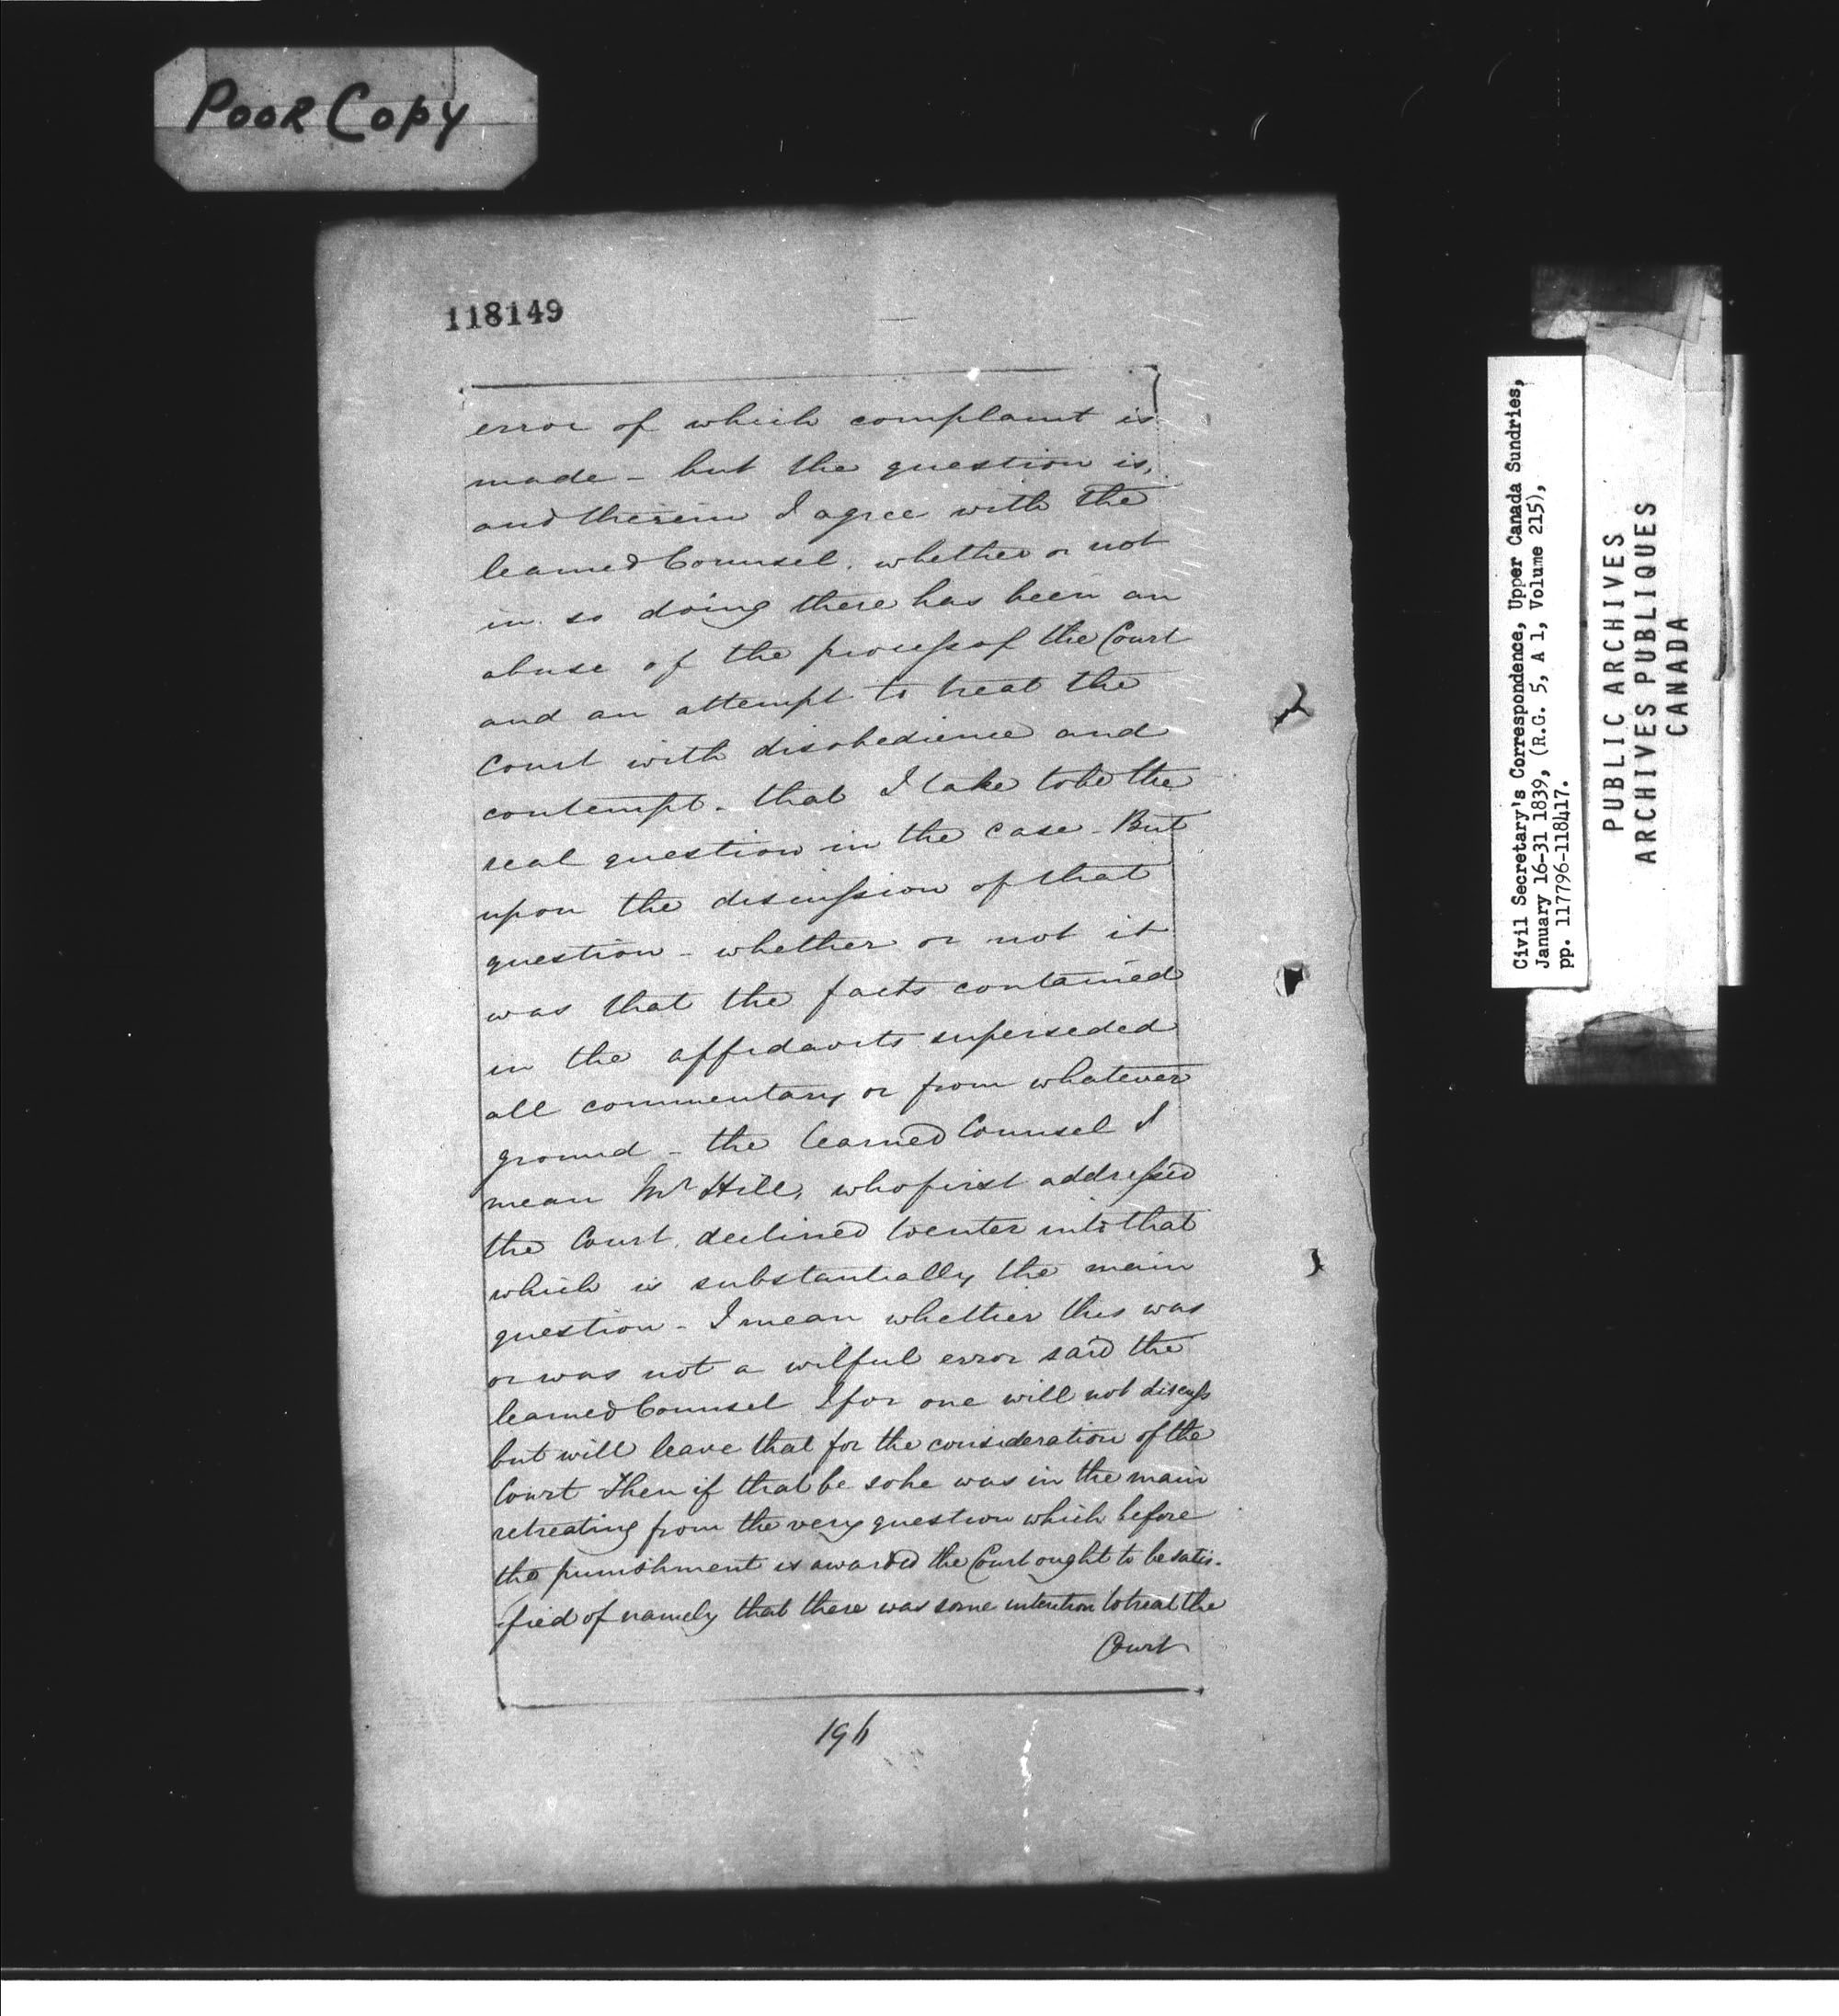 Poor Copy
118149
error of which complaint is
made - but the question is,
and therein I agree with the
learned Counsel, whether or not
in so doing there has been an
abuse of the process of the Court
and an attempt to treat the
Court with disobedience and
contempt - that I take to be the
real question in the case - But
upon the discussion of that
question - whether or not it
was that the facts contained
in the affidavits superseded
all commentary or from whatever
ground - the learned Counsel I
mean Mr Hill, who first addressed
the Court, declined to enter into that
which is substantially the main
question - I mean whether this was
or was not a wilful error said the
learned Counsel I for one will not discuss
but will leave that for the consideration of the
Court Then if that be so he was in the main
retreating from the very question which before
the punishment is awarded the Court ought to be satis-
fied of namely that there was some intention to treat the
Court
Civil Secretary's Correspondence, Upper Canada Sundries,
January 16-31 1839, (R.G. 5, A 1, Volume 215),
pp. 117796-118417.
PUBLIC ARCHIVES
ARCHIVES PUBLIQUES
CANADA